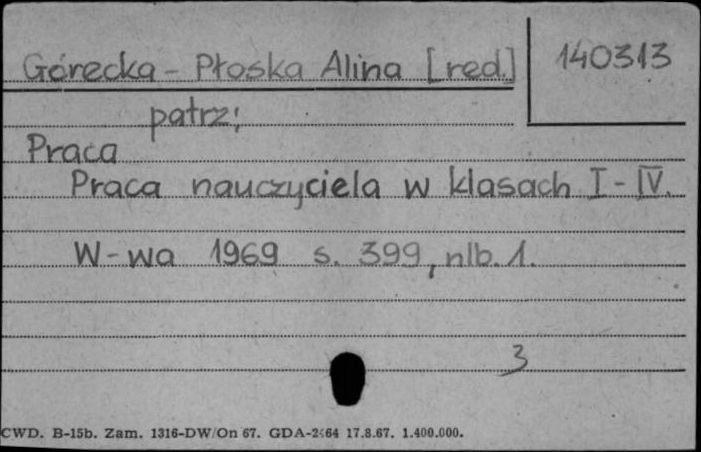 Górecka - Płoska Alina [red.]
140313
patrz;
Praca
Praca nauczyciela w klasach I - IV.
W-wa 1969 s. 399, nlb. 1.
3
CWD. B-15b. Zam. 1316-DW/On 67. GDA-2464 17.8.67. 1.400.000.